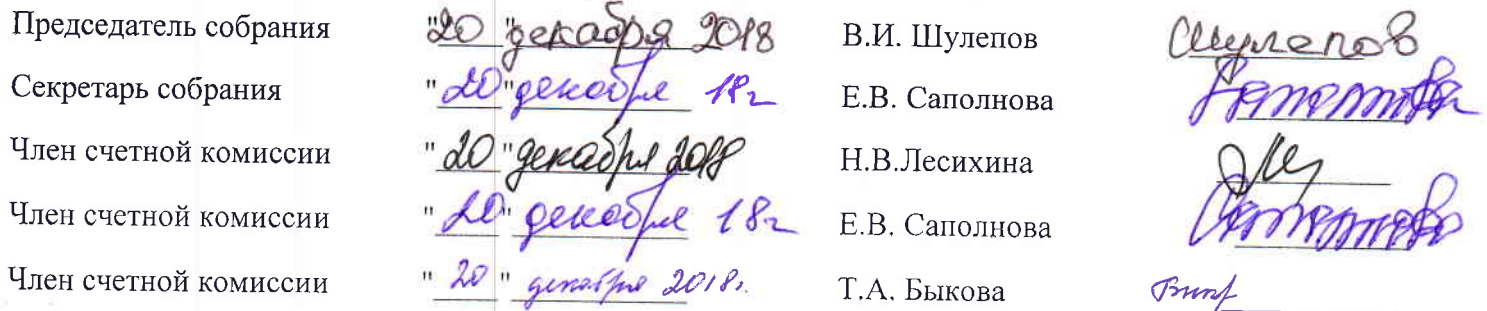 Председатель собрания "20" декабря 2018 В.И. Шулепов Шулепов
Секретарь собрания "20" декабря 18г Е.В. Саполнова
Член счетной комиссии "20" декабря 2018 Н.В.Лесихина
Член счетной комиссии "20" декабря 18г Е.В. Саполнова
Член счетной комиссии "20" декабря 2018г. Т.А. Быкова